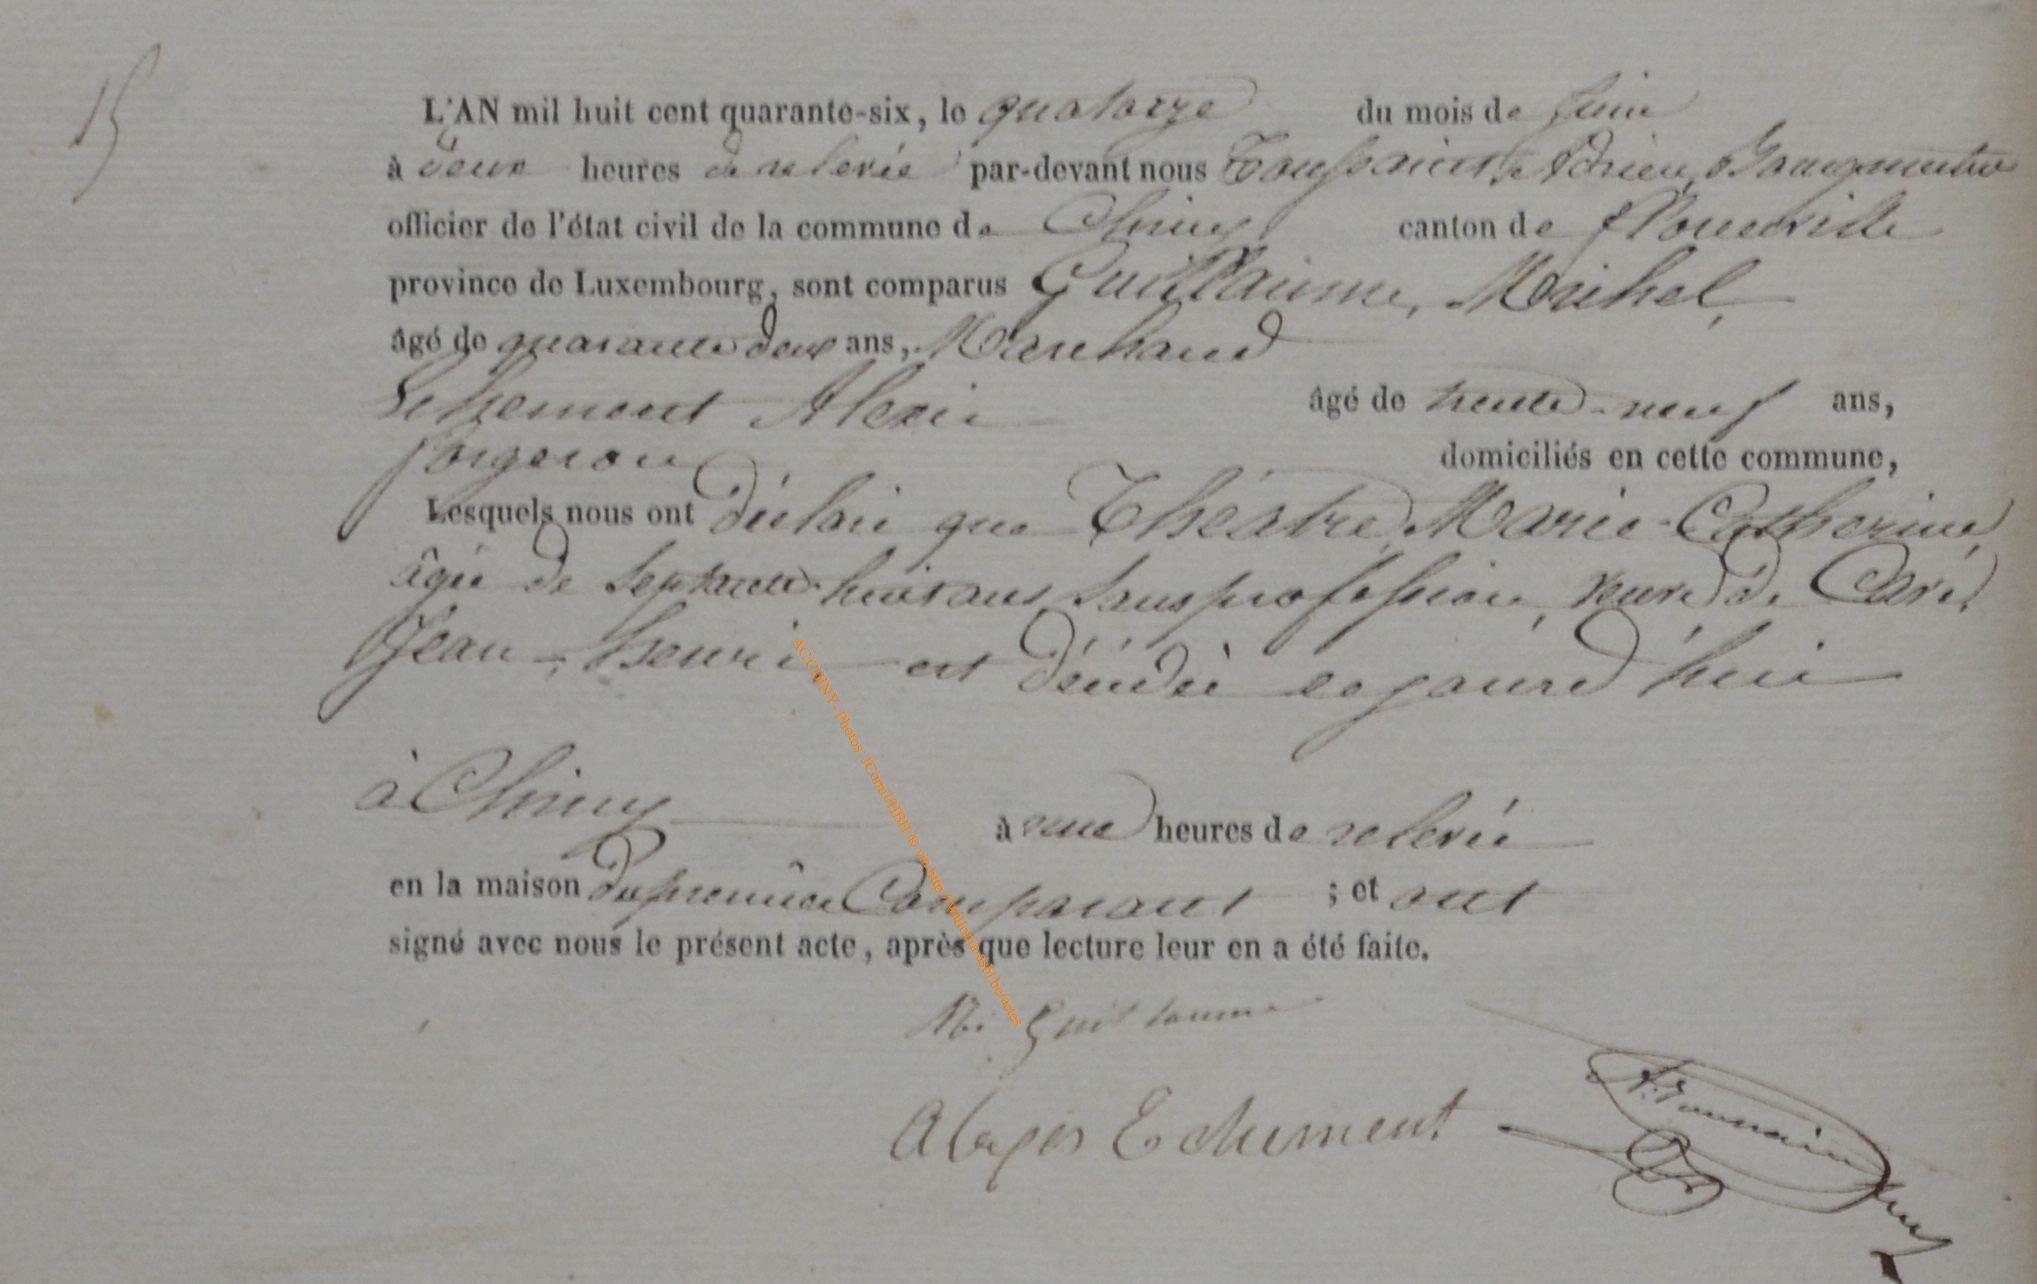 15
L'AN mil huit cent quarante-six, le quatorze du mois de juin
à deux heures de relevée par-devant nous Toussaint, Adrien, Bourgmestre
officier de l'état civil de la commune de Chiny canton de florenville
province de Luxembourg, sont comparus Guillaume, Michel,
âgé de quarante deux ans, Marchand
Echement Alexis âgé de trente-neuf ans,
forgeron domiciliés en cette commune,
Lesquels nous ont déclaré que Théâtre, Marie-Catherine,
âgée de septante-huit ans, sans profession, veuve de Caré,
Jean-henri est décédée cejourd'hui
à Chiny à une heures de relevée
en la maison du premier Comparant ; et ont
signé avec nous le présent acte, après que lecture leur en a été faite.
Mi Guillaume
Alexis Echement
A. Toussaint